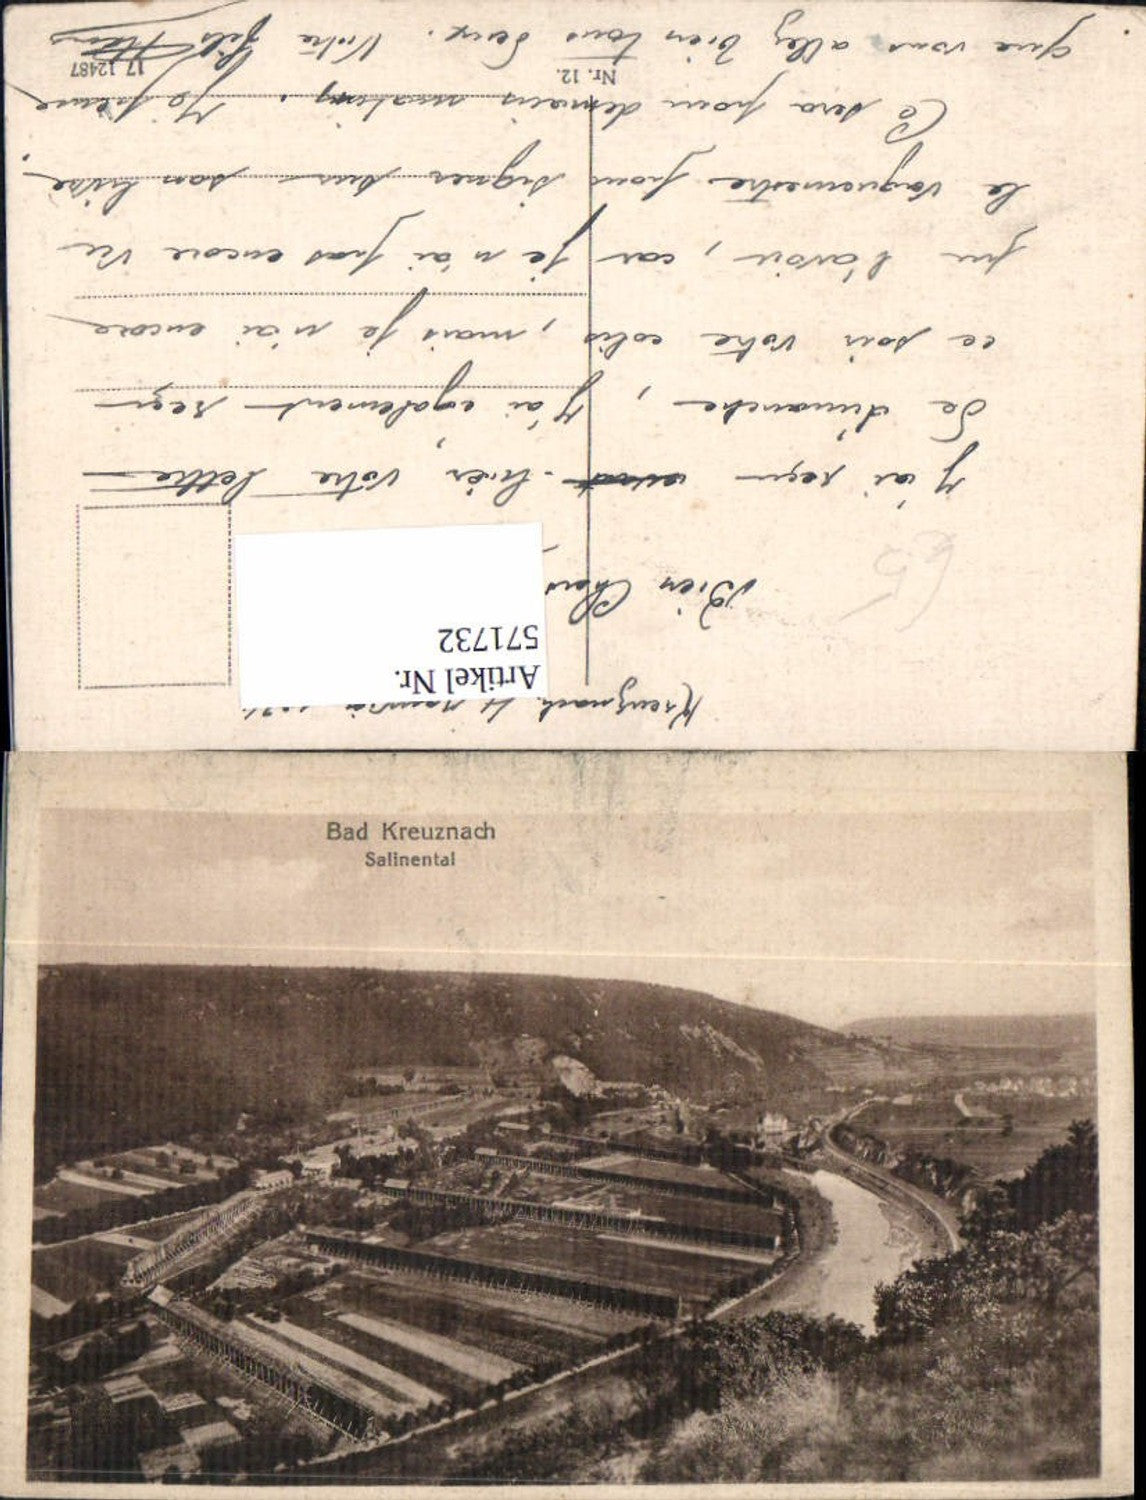 Kreuznach,
Bien Cher
J'ai reçu hier votre lettre
De dimanche, J'ai également reçu
ce soir votre colis, mais je n'ai encore
pu l'avoir, car je n'ai pas encore vu
le vaguemestre pour signer sur son livre.
Ce sera pour demain matin. Je pense
que vous allez bien tous deux. Votre fils
Artikel Nr.
571732
Nr. 12.
17 12487
Bad Kreuznach
Salinental